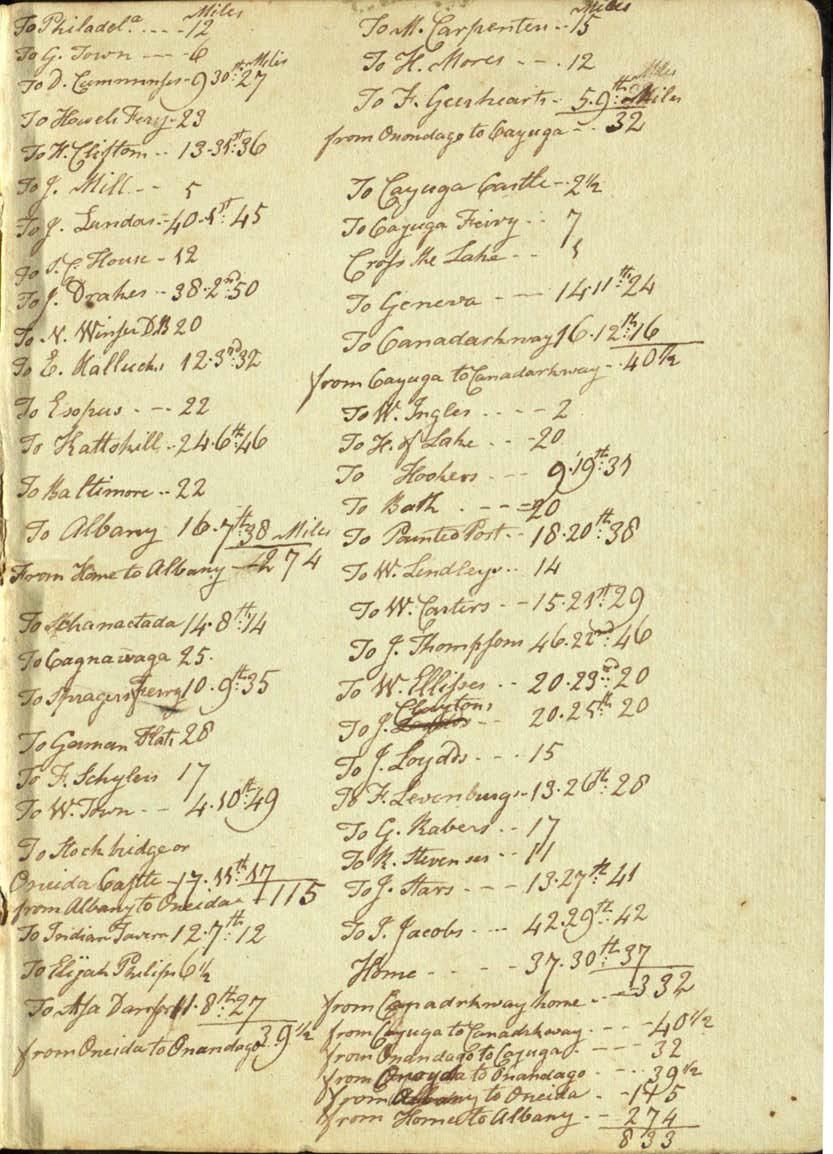 Miles
To Philadelª. - - - - 12
To G. Town - - - 6
Miles
To D. Cummings - 9 30th: 27
To Howels Fery - 23
To H. Cliftom - - 13 - 31st: 36
To J. Mill - - 5
To J. Lundas - 40 - 1st: 45
To S. C. House - 12
To J. Drakes - - 38 - 2nd: 50
To N. Winser DB 20
To E. Kallucks 12 - 3rd: 32
To Esopus - - - 22
To Kattskill - - 24 - 6th: 46
To Baltimore - - 22
To Albany 16 - 7th: 38 Miles
From Home to Albany - 274
To Schanactada 14 - 8th: 14
To Cagnawaga 25 -
To Spragers Ferry 10 - 9th: 35
To German Flats 28
To F. Schylers 17
To W. Town - - 4 - 10th: 49
To Stockbridge or
Oneida Castle - 17 - 11th 17
from Albany to Oneida - 115
To Indian Tavern 12 - 7th: 12
To Elijah Philips 6½
To Asa Danfort 11 - 8th: 27
from Oneida to Onandago 39½
Miles
To M. Carpenten - - 15
To H. Mores - - - 12
Miles
To F. Geerhearts - 5 - 9th: Miles
from Onondago to Cayuga - - 32
To Cayuga Castle - - 2½
To Cayuga Feiry - - 7
Cross the Lake - - 1
To Geneva - - - 14 - 11th: 24
To Canadarkway 16 - 12th: 16
from Cayuga to Canadarkway - 40½
To W. Ingles - - - - 2
To H. of Lake - - - 20
To Hookers - - - 9 - 19th: 31
To Bath - - - - 20
To Painted Post - - 18 - 20th: 38
To W. Lindleys - - 14
To W. Carters - - 15 - 21st: 29
To J. Thompsom 46 - 22nd: 46
To W. Ellises - - 20 - 23rd: 20
Claytons
To J. - - 20 - 25th: 20
To J. Loydds - - - 15
To F. Levenburgs - 13 - 26th: 28
To G. Rabers - - 17
To R. Stevenses - - 11
To J. Stars - - - 13 - 27th: 41
To J. Jacobs - - - 42 - 29th: 42
Home - - - - 37 - 30th: 37
from Canadrkway home - - - 332
from Cayuga to Canadrkway - - - 40½
from Onandago to Cayuga - - - 32
from Onoyda to Onandago - - - 39½
from Albany to Oneida - - 145
from Home to Albany - - 274
833